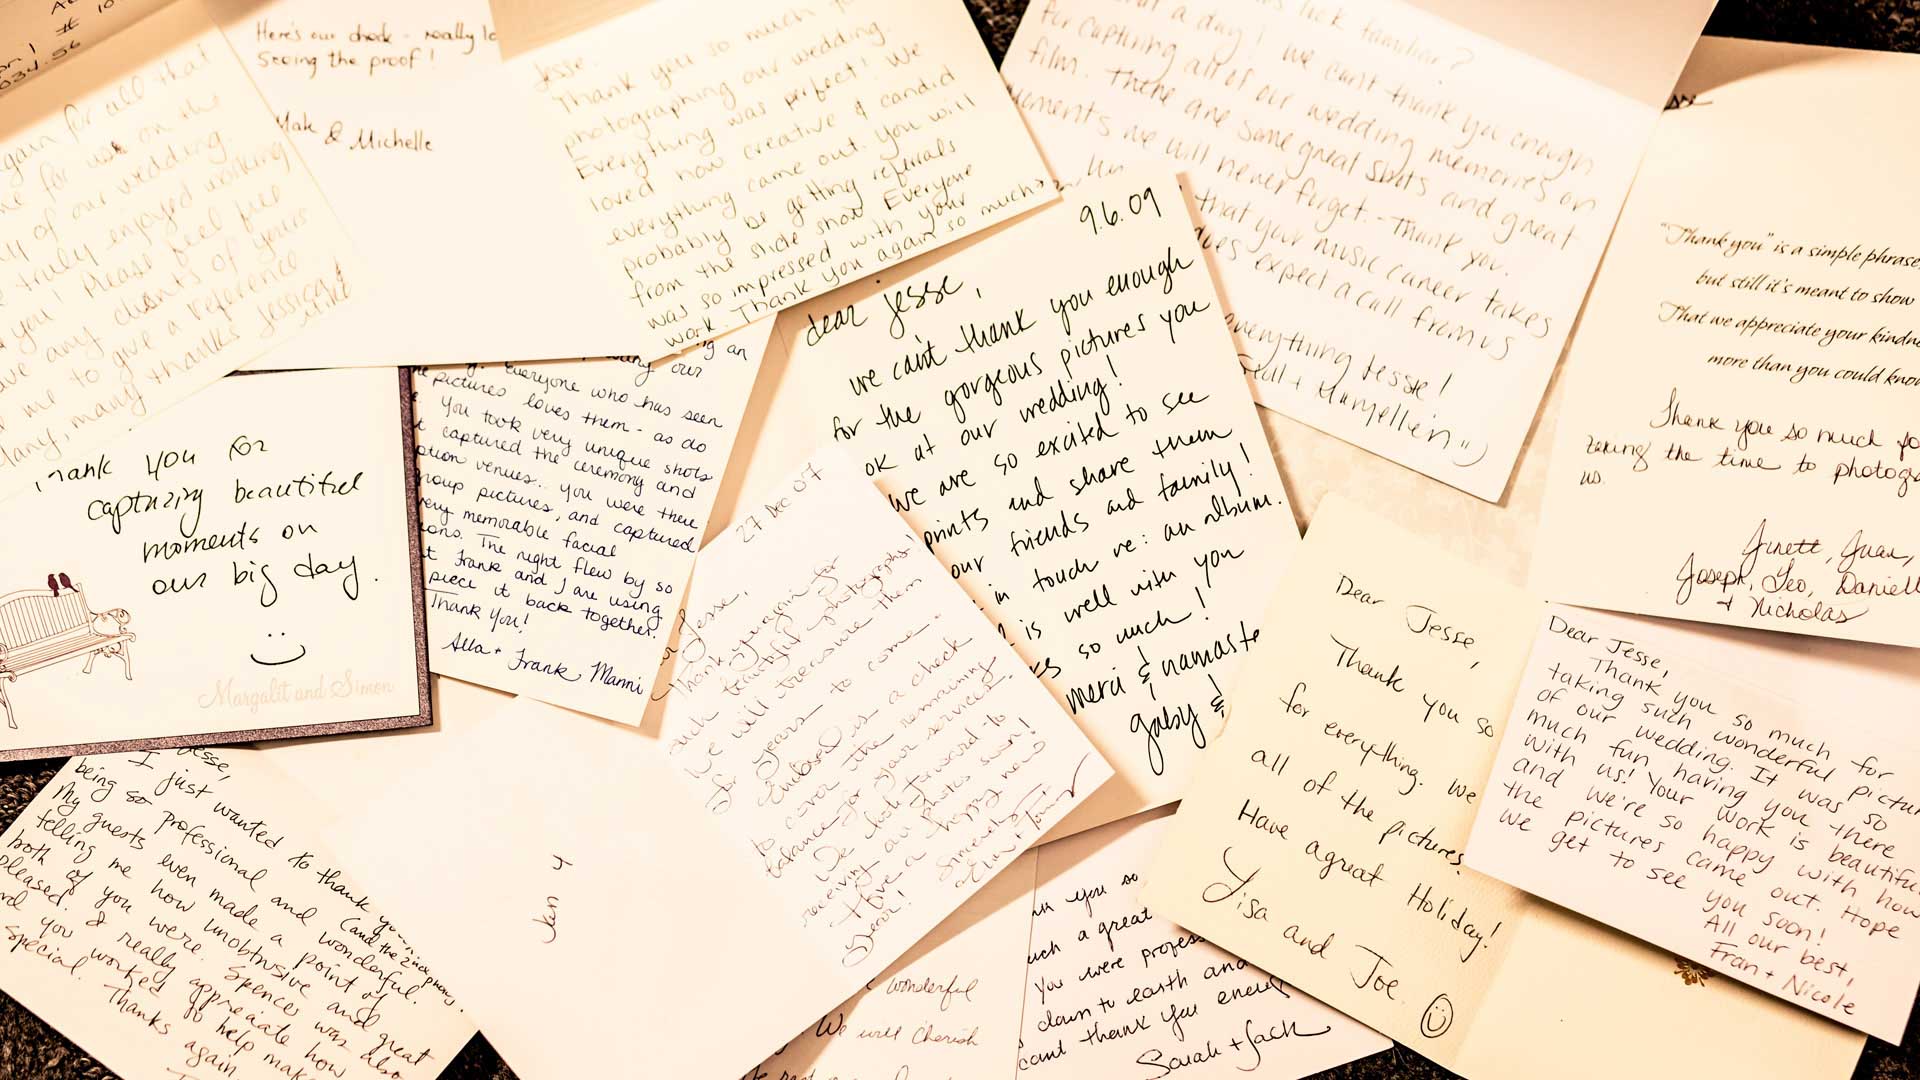 Here's our check - really lo
Seeing the proof!
& Michelle
gain for all that
on the
of our wedding.
truly enjoyed working
you! Please feel free
any clients of yours
me to give a reference
many thanks Jessica
Jesse.
Thank you so much
photographing our wedding.
Everything was perfect! We
loved how creative & candid
everything came out. You will
probably be getting referrals
from the slide show. Everyone
was so impressed with your
work. Thank you again so much
look familiar?
a day! We can't thank you enough
for capturing all of our wedding memories on
film. There are some great shots and great
moments we will never forget. - Thank you.
that your music career takes
does expect a call from us
everything Jesse!
+ Maryellen
"Thank you" is a simple phrase
but still it's meant to show
That we appreciate your kindne
more than you could know
Thank you so much for
taking the time to photogra
us.
Juan,
Joseph, Leo, Daniell
+ Nicholas
9.6.09
dear jesse,
we can't thank you enough
for the gorgeous pictures you
ok at our wedding!
we are so excited to see
prints and share them
our friends and family!
in touch re: an album.
is well with you
so much!
merci & namaste
gaby &
Thank you for
capturing beautiful
moments on
our big day.
Margalit and Simon
our
Everyone who has seen
e pictures loves them - as do
. You took very unique shots
t captured the ceremony and
ption venues.. you were there
roup pictures, and captured
very memorable facial
ions. The night flew by so
t Frank and I are using
piece it back together.
Thank You!
Alla + Frank Manni
27 Dec 07
Jesse,
Thank you again for
such beautiful photographs!
We will treasure them
for years to come.
Enclosed is a check
to cover the remaining
balance for your services.
We look forward to
receiving our photos soon!
Have a happy new
year!
Sincerely,
Dear Jesse,
Thank you so
for everything. We
all of the pictures.
Have a great Holiday!
Lisa and Joe
Dear Jesse,
Thank you so much for
taking such wonderful pictur
of our wedding. It was so
much fun having you there
with us! Your work is beautiful
and we're so happy with how
the pictures came out. Hope
we get to see you soon!
All our best,
Fran + Nicole
Jesse,
I just wanted to thank you
being so professional and wonderful.
My guests even made a point of
telling me how unobtrusive and great
both of you were. Spence was also
pleased. I really appreciate how
you worked to help make
special.
Thanks again.
Jan 4
wonderful
We will cherish
you so
such a great
You were profess
down to earth and
cant thank you enoug
Sarah + Jack